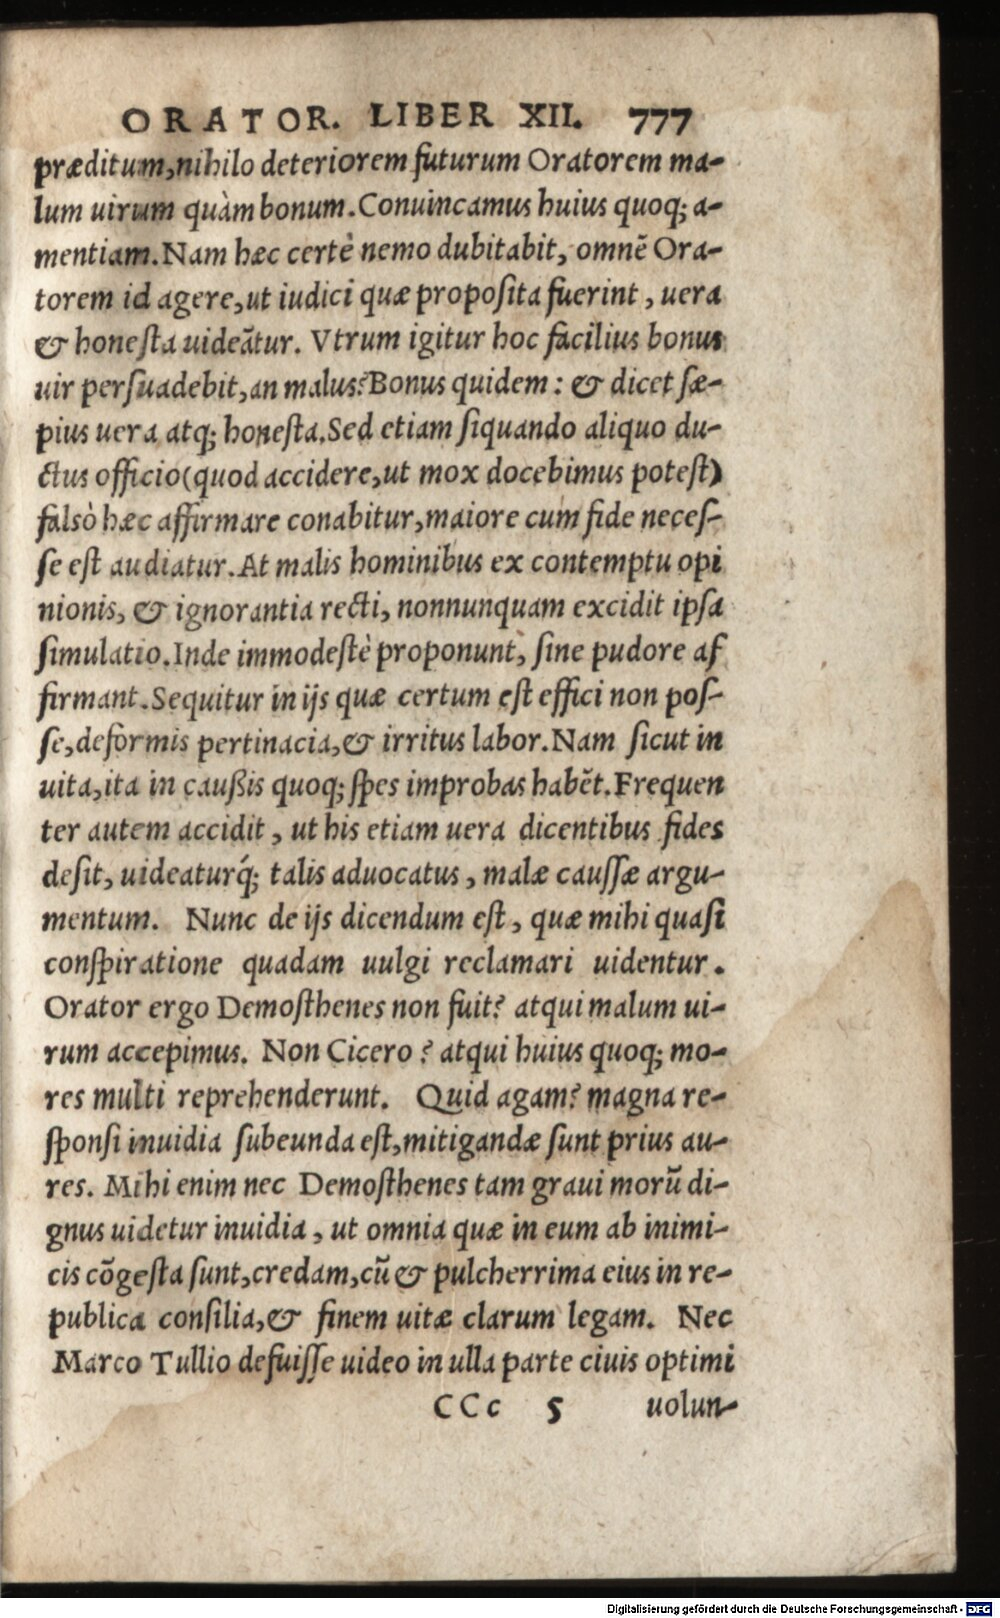 ORATOR. LIBER XII. 777
præditum,nihilo deteriorem futurum Oratorem ma-
lum uirum quàm bonum.Conuincamus huius quoq; a-
mentiam.Nam hæc certè nemo dubitabit, omnē Ora-
torem id agere,ut iudici quæ proposita fuerint, uera
& honesta uideātur. Vtrum igitur hoc facilius bonus
uir persuadebit,an malus?Bonus quidem: & dicet sæ-
pius uera atq; honesta.Sed etiam siquando aliquo du-
ctus officio(quod accidere,ut mox docebimus potest)
falsò hæc affirmare conabitur,maiore cum fide neces-
se est audiatur.At malis hominibus ex contemptu opi
nionis, & ignorantia recti, nonnunquam excidit ipsa
simulatio.Inde immodestè proponunt, sine pudore af
firmant.Sequitur in ijs quæ certum est effici non pos-
se,deformis pertinacia,& irritus labor.Nam sicut in
uita,ita in caußis quoq; spes improbas habēt.Frequen
ter autem accidit, ut his etiam uera dicentibus fides
desit, uideaturq́; talis aduocatus, malæ caussæ argu-
mentum. Nunc de ijs dicendum est, quæ mihi quasi
conspiratione quadam uulgi reclamari uidentur.
Orator ergo Demosthenes non fuit? atqui malum ui-
rum accepimus. Non Cicero? atqui huius quoq; mo-
res multi reprehenderunt. Quid agam? magna re-
sponsi inuidia subeunda est,mitigandæ sunt prius au-
res. Mihi enim nec Demosthenes tam graui morū di-
gnus uidetur inuidia, ut omnia quæ in eum ab inimi-
cis cōgesta sunt,credam,cū & pulcherrima eius in re-
publica consilia,& finem uitæ clarum legam. Nec
Marco Tullio defuisse uideo in ulla parte ciuis optimi
CCc 5 uolun-
Digitalisierung gefördert durch die Deutsche Forschungsgemeinschaft - DFG